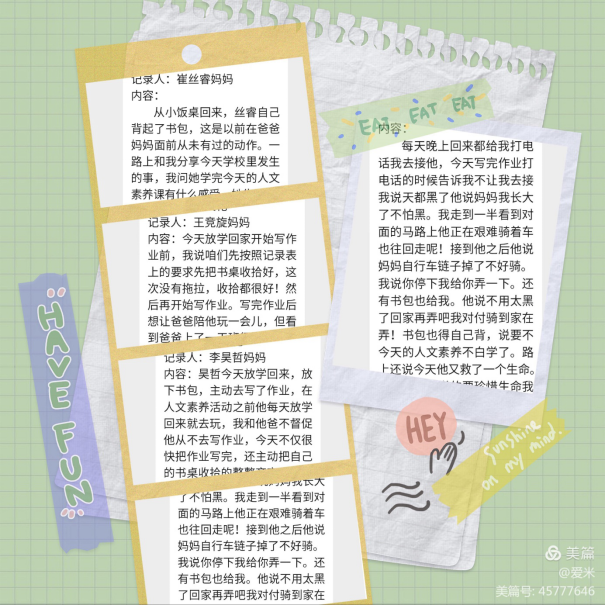 记录人：崔丝睿妈妈
内容：
从小饭桌回来，丝睿自己
背起了书包，这是以前在爸爸
妈妈面前从未有过的动作。一
路上和我分享今天学校里发生
的事，我问她学完今天的人文
素养课有什么感受，
记录人：王竞旋妈妈
内容：今天放学回家开始写作
业前，我说咱们先按照记录表
上的要求先把书桌收拾好，这
次没有拖拉，收拾都很好！然
后再开始写作业。写完作业后
想让爸爸陪他玩一会儿，但看
到爸爸上了一天班
记录人：李昊哲妈妈
内容：昊哲今天放学回来，放
下书包，主动去写了作业，在
人文素养活动之前他每天放学
回来就去玩，我和他爸不督促
他从不去写作业，今天不仅很
快把作业写完，还主动把自己
的书桌收拾的整整齐齐
妈妈我长大
了不怕黑。我走到一半看到对
面的马路上他正在艰难骑着车
也往回走呢！接到他之后他说
妈妈自行车链子掉了不好骑。
我说你停下我给你弄一下。还
有书包也给我。他说不用太黑
了回家再弄吧我对付骑到家在
EAT EAT EAT
内容：
每天晚上回来都给我打电
话我去接他，今天写完作业打
电话的时候告诉我不让我去接
我说天都黑了他说妈妈我长大
了不怕黑。我走到一半看到对
面的马路上他正在艰难骑着车
也往回走呢！接到他之后他说
妈妈自行车链子掉了不好骑。
我说你停下我给你弄一下。还
有书包也给我。他说不用太黑
了回家再弄吧我对付骑到家在
弄！书包也得自己背，说要不
今天的人文素养不白学了。路
上还说今天他又救了一个生命。
要珍惜生命我
HAVE FUN
HEY
Sunshine
on my mind.
美篇
@爱米
美篇号: 45777646